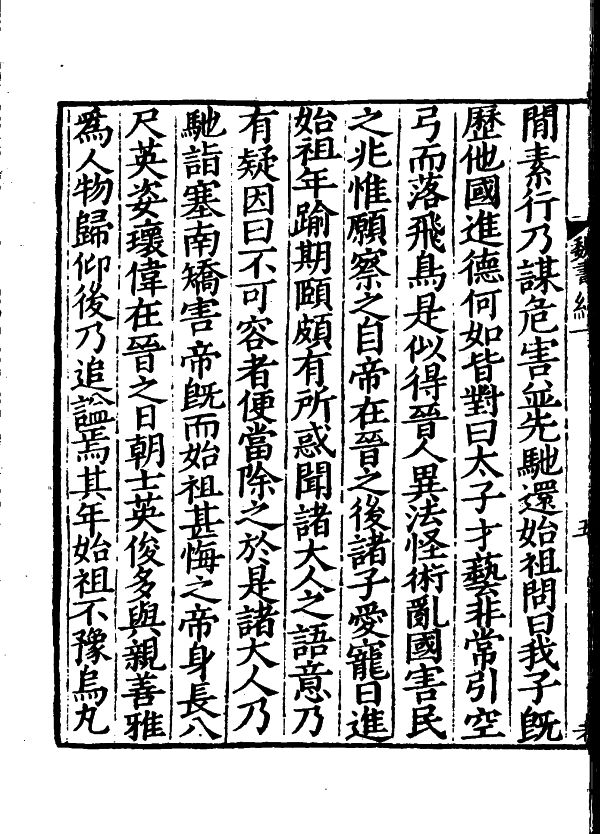 閒素行乃謀危害並先馳還始祖問曰我子旣
歷他國進德何如皆對曰太子才藝非常引空
弓而落飛鳥是似得晉人異法怪術亂國害民
之兆惟願察之自帝在晉之後諸子愛寵日進
始祖年踰期頤頗有所惑聞諸大人之語意乃
有疑因曰不可容者便當除之於是諸大人乃
馳詣塞南矯害帝旣而始祖甚悔之帝身長八
尺英姿瓌偉在晉之日朝士英俊多與親善雅
爲人物歸仰後乃追諡焉其年始祖不豫烏丸
魏書紀一
五